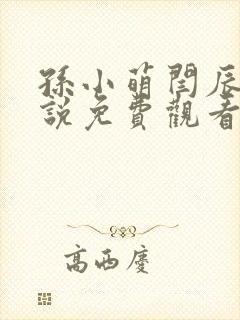 孫小萌閆辰
說免費觀看
高西慶